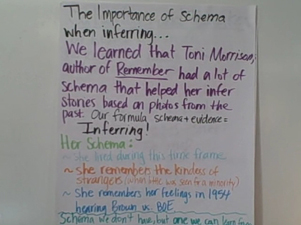 The Importance of Schema
when inferring...
We learned that Toni Morrison,
author of Remember had a lot of
schema that helped her infer
stories based on photos from the
past. Our formula schema + evidence =
Inferring!
Her Schema:
~ she lived during this time frame
~ she remembers the kindness of
strangers (when she was seen as a minority)
~ she remembers her feelings in 1954
hearing Brown vs. BOE
Schema we don't have, but one we can learn from